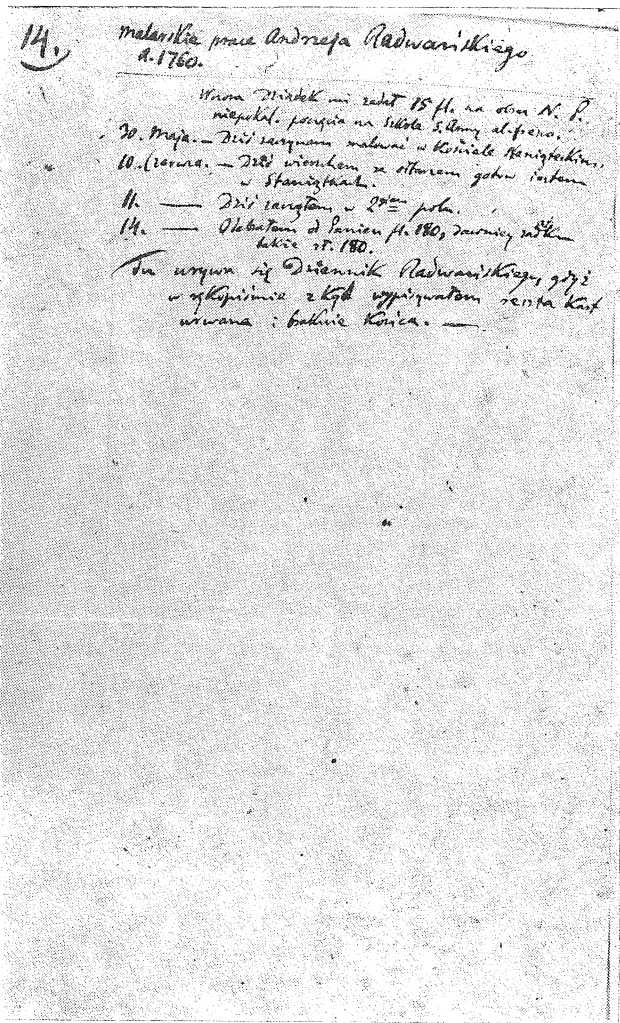 14.
malarskie prace Andrzeja Radwańskiego
A. 1760.
Dziadek mi zadał 15 fl. na obraz N. P.
niepokal. poczęcia na Szkole S. Anny al. fresco.
30. Maja. — Dziś zaczynam malować w Kościele Staniąteckim.
10. Czerwca. — Dziś wierzchem za ołtarzem gotów jestem
w Staniątkach.
11. — Dziś zacząłem w 2giem polu.
14. — Odebrałem od Panien fl. 180, dawniej
także zł. 180.
Tu urywa się Dziennik Radwańskiego, gdyż
w rękopiśmie z kąd wypisywałem reszta kart
urwana i braknie końca. —